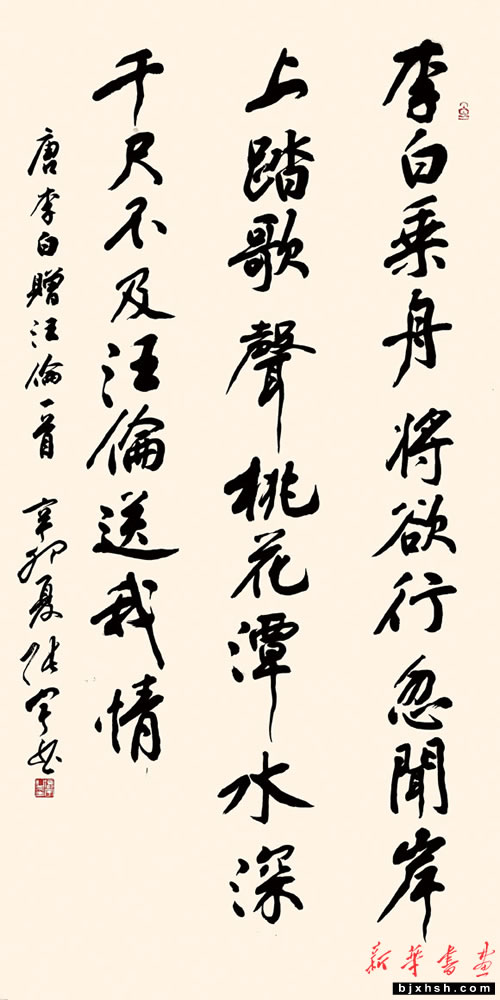 李白乘舟將欲行忽聞岸
上踏歌聲桃花潭水深
千尺不及汪倫送我情
唐李白贈汪倫一首 辛卯夏張宇书
新華書畫
bjxhsh.com